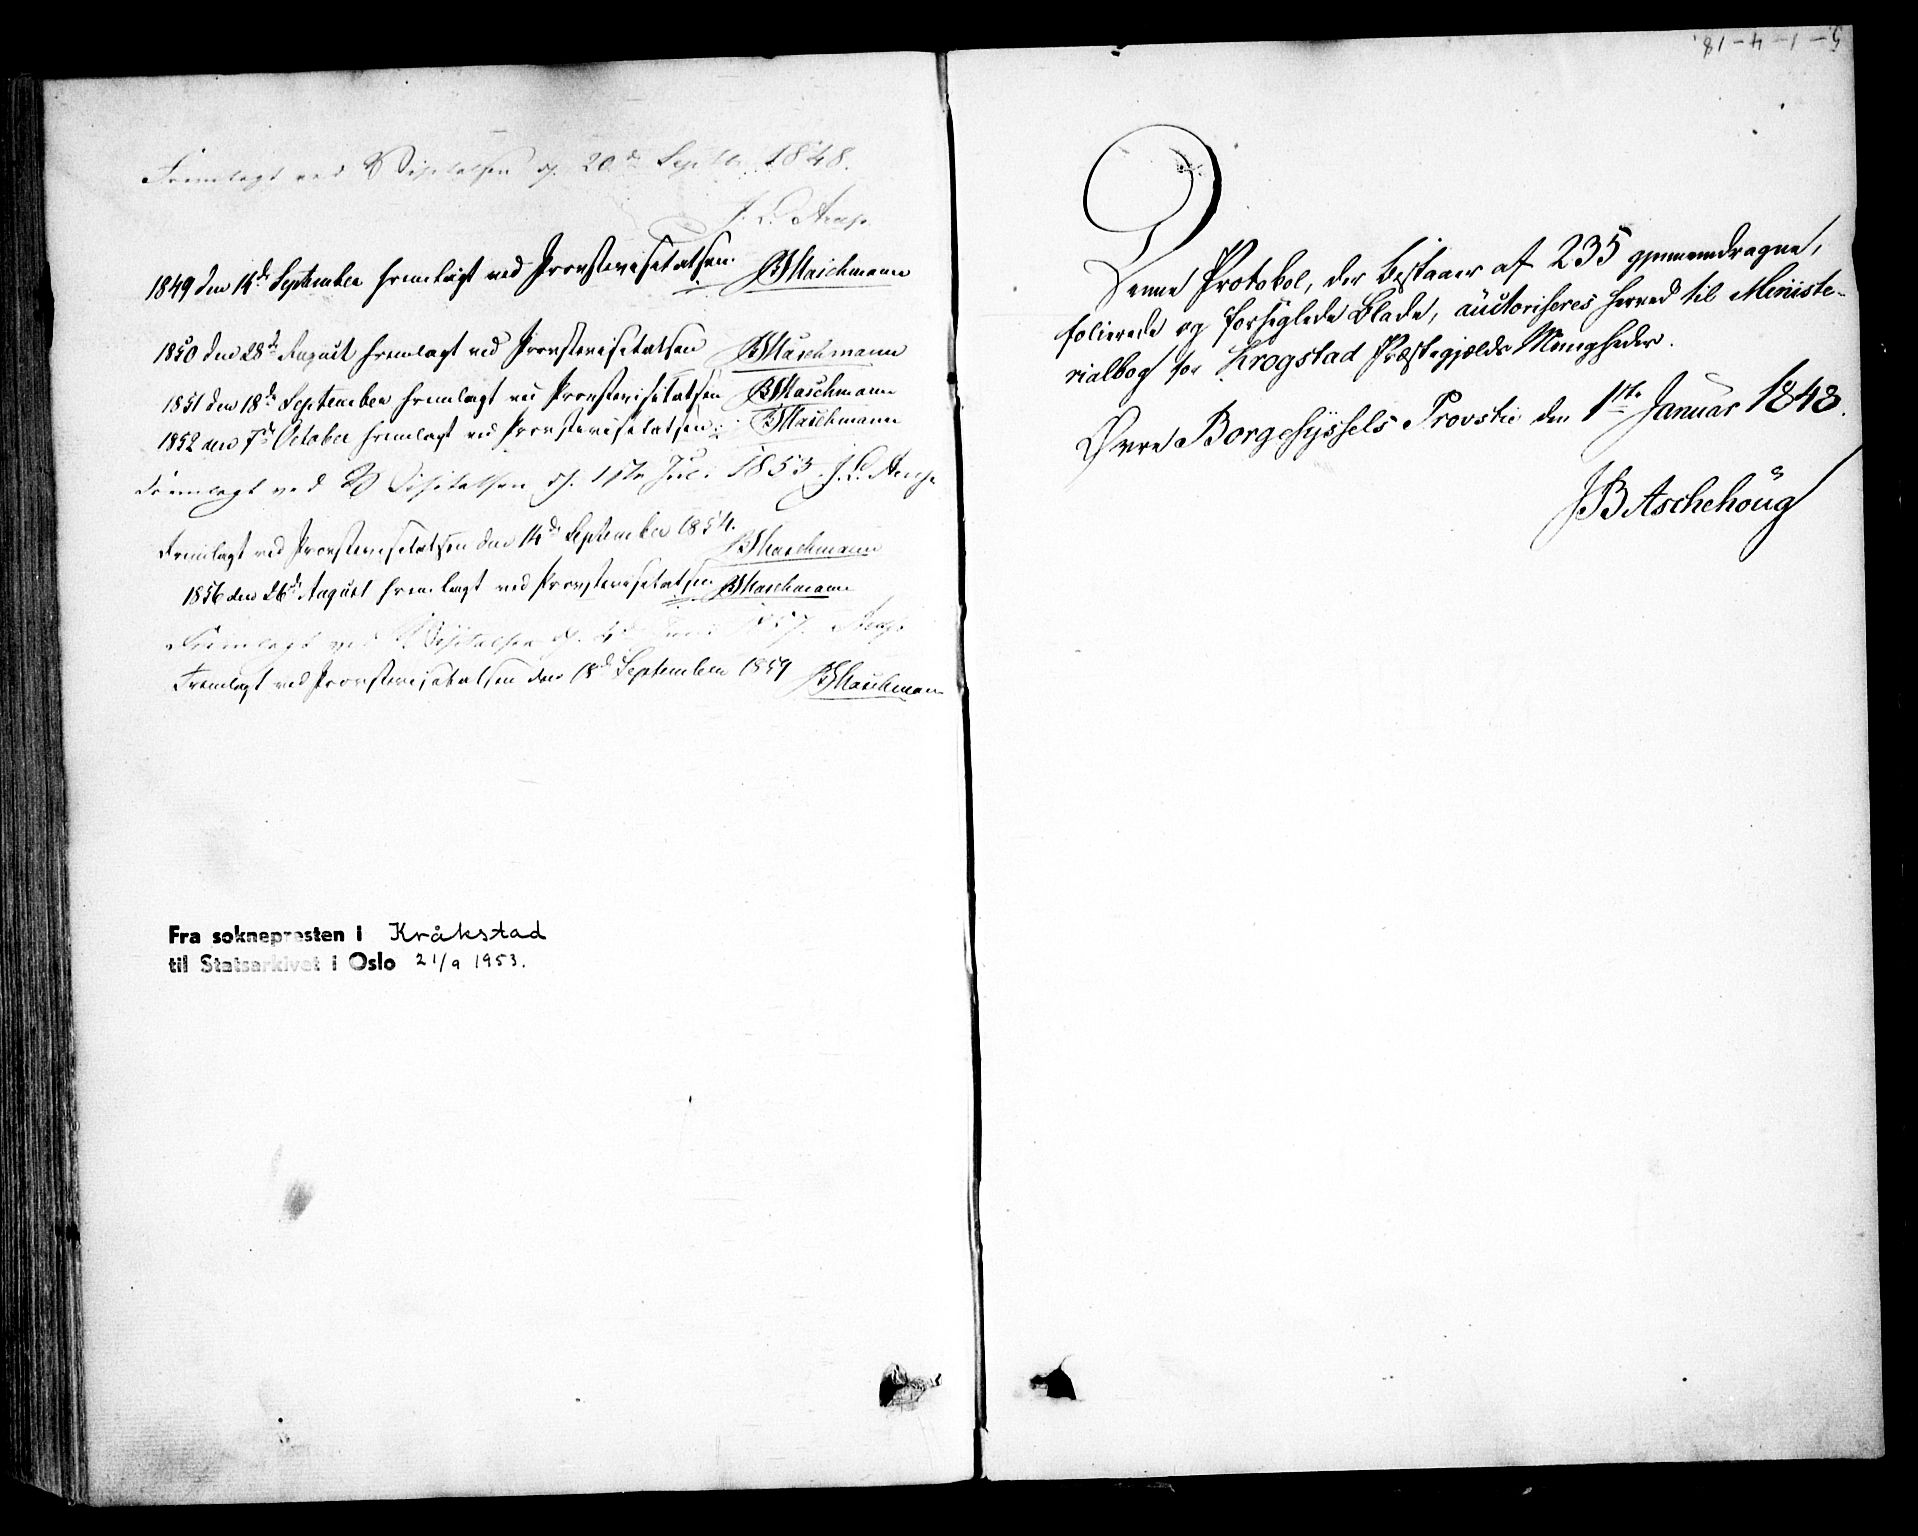 Fremlagt ved Visitatsen d. 20de Septbr. 1848.
J. L. Arup.
1849 den 14de September fremlagt ved Provstevisitatsen. B Maschmann
1850 den 28de August fremlagt ved Provstevisitatsen B Maschmann
1851 den 18de September fremlagt ved Provstevisitatsen B Maschmann
1852 den 7de October fremlagt ved Provstevisitatsen. B Maschmann
Fremlagt ved Visitatsen d. 1ste Juli 1853. J. L. Arup.
Fremlagt ved Provstevisitatsen den 14de September 1854. B Maschmann
1856 den 26de August fremlagt ved Provstevisitatsen B Maschmann
Fremlagt ved Visitatsen d. 1857. Arup.
Fremlagt ved Provstevisitatsen den 18de September 1859 B Maschmann
Fra soknepresten i Kråkstad
til Statsarkivet i Oslo 21/9 1953.
5-1-4-18.
Denne Protokol, der bestaaer af 235 gjennemdragne,
folierede og forseglede Blade, autoriseres herved til Ministe-
rialbog for Krogstad Præstegjælds Menigheder.
Øvre Borgesyssels Provstie den 1ste Januar 1848.
JB Aschehoug